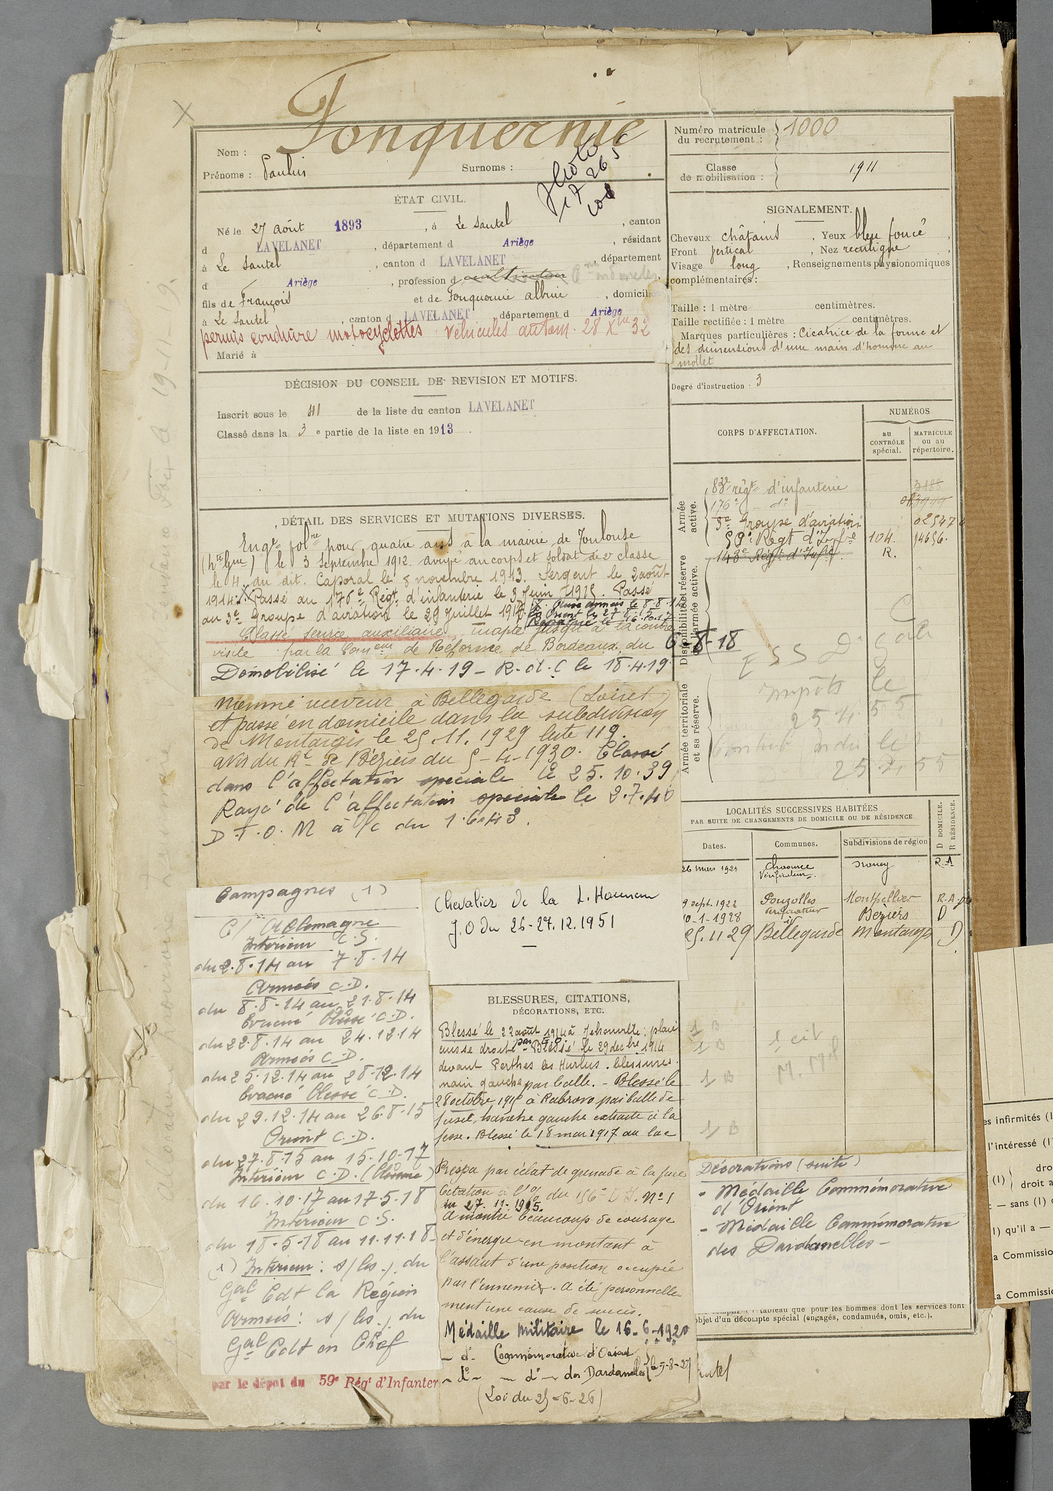 Fonquernie
Nom :
Prénoms : Paulin
Surnoms :
Numéro matricule du recrutement : 1000
Classe de mobilisation : 1911
ÉTAT CIVIL.
Né le 27 août 1893, à Le Sautel, canton
d LAVELANET, département d Ariège, résidant
à Le Sautel, canton d LAVELANET, département
d Ariège, profession d cultivateur
fils de François et de Fonquernie Albine, domicilié
à Le Sautel, canton d LAVELANET, département d Ariège
permis conduire motocyclettes véhicules autom. 28 Xbre 32
Marié à
SIGNALEMENT.
Cheveux châtains, Yeux bleu foncé,
Front vertical, Nez rectiligne,
Visage long, Renseignements physionomiques
complémentaires :
Taille : 1 mètre centimètres.
Taille rectifiée : 1 mètre centimètres.
Marques particulières : Cicatrice de la forme et
des dimensions d'une main d'homme au
mollet
Degré d'instruction : 3
DÉCISION DU CONSEIL DE REVISION ET MOTIFS.
Inscrit sous le 41 de la liste du canton LAVELANET
Classé dans la 3e partie de la liste en 1913.
CORPS D'AFFECTATION.
NUMÉROS
au CONTRÔLE spécial.
MATRICULE ou au répertoire.
Armée active.
83e régt d'infanterie
176e d°
3e Groupe d'aviation
59e Régt d'Infie 104 14656.
143e Régt d'Infie R.
Disponibilité et réserve de l'armée active.
Armée territoriale et sa réserve.
DÉTAIL DES SERVICES ET MUTATIONS DIVERSES.
Engt volre pour quatre ans à la mairie de Toulouse
(Hte Gne) le 3 septembre 1912 arrivé au corps et soldat de 2e classe
le 4 du dit. Caporal le 8 novembre 1913. Sergent le 2 août
1914. Passé au 176e Régt d'infanterie le 3 juin 1915. Passé
au 3e Groupe d'aviation le 29 juillet 1917
Classé service auxiliaire, inapte jusqu'à la contre
visite par la Comon de Réforme de Bordeaux du 6-8-18
Démobilisé le 17.4.19 - R.d.C le 18.4.19
Nommé receveur à Bellegarde (Loiret)
et passé en domicile dans la subdivision
de Montargis le 25.11.1929 liste 119.
avis du Rt de Béziers du 5-4-1930. Classé
dans l'affectation spéciale le 25.10.39
Rayé de l'affectation spéciale le 2.7.40
D.F.O.M à /c du 1.6.43.
LOCALITÉS SUCCESSIVES HABITÉES
PAR SUITE DE CHANGEMENTS DE DOMICILE OU DE RÉSIDENCE
Dates. Communes. Subdivisions de région
D. DOMICILE.
R. RÉSIDENCE.
26 Mars 1921 R.A
9 sept. 1922 Pouzolles Montpellier
10-1-1928 Béziers D
25.11 29 Bellegarde Montargis D
Chevalier de la L. Honneur
J.O du 26-27.12.1951
Campagnes (1)
C/ Allemagne
Intérieur C.S.
du 2.8.14 au 7-8-14
Armées C.D.
du 8-8-14 au 21-8-14
Evacué blessé C.D.
du 22.8.14 au 24.12.14
Armées C.D.
du 25.12.14 au 28.12.14
Evacué blessé C.D.
du 29.12.14 au 26.8.15
Orient C.D.
du 27-8-15 au 15-10-17
Intérieur C.D. (blessure)
du 16.10.17 au 17-5-18
Intérieur C.S.
du 18-5-18 au 11-11-18
(1) Intérieur : s/les. du
Gal Cdt la Région
Armées : s/les. du
Gal Cdt en Chef
par le dépôt du 59e Rég' d'Infanter
BLESSURES, CITATIONS,
DÉCORATIONS, ETC.
Blessé le 22 août 1914 à Jehonville : plaie
cuisse droite par balle. Blessé le 29 décbre 1914
devant Perthes les Hurlus. blessure
main gauche par balle. - Blessé le
28 octobre 1915 à Rabrovo par balle de
fusil, hanche gauche extraite à la
fesse. Blessé le 18 mai 1917 au lac
Prespa par éclat de grenade à la face
Citation à l'O. du 156e D.I. N° 1
du 27.11.1915.
A montré beaucoup de courage
et d'énergie en montant à
l'assaut d'une position occupée
par l'ennemi. A été personnelle
ment une cause de succès.
Médaille militaire le 16-6-1920
- d° - Commémorative d'Orient
- d° - - d° - des Dardanelles
(Loi du 25-6-26)
1 B 1 cit
1 B M. Mil
1 B
1 B
Décorations (suite)
- Médaille Commémorative
d'Orient
- Médaille Commémorative
des Dardanelles -
tableau que pour les hommes dont les services font
objet d'un décompte spécial (engagés, condamnés, omis, etc.).
es infirmités (1
l'intéressé (1
dro
(1) droit a
— sans (1)
(1) qu'il a —
a Commissio
a Commissio